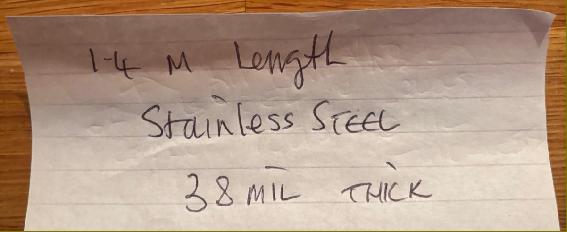 1.4 M Length
Stainless STEEL
38 MIL THICK